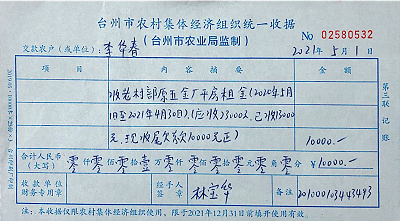 台州市农村集体经济组织统一收据
（台州市农业局监制）
No 02580532
交款农户（或单位）：李华春 2021年5月1日
项目 内容摘要 金额
收老村部原五金厂平房租金(2020年5月
1日至2021年4月30日).(应收23000元.已收13000
元.现收尾欠款10000元正) 10000.—
合计人民币（大写） 零仟零佰零拾壹万零仟零佰零拾零元零角零分 ¥10000.—
收款单位财务专用章 经手人签章 林宝华 备注 201000103443493
注：本收据仅限农村集体经济组织使用，限于2021年12月31日前填开使用有效。
第三联 记账